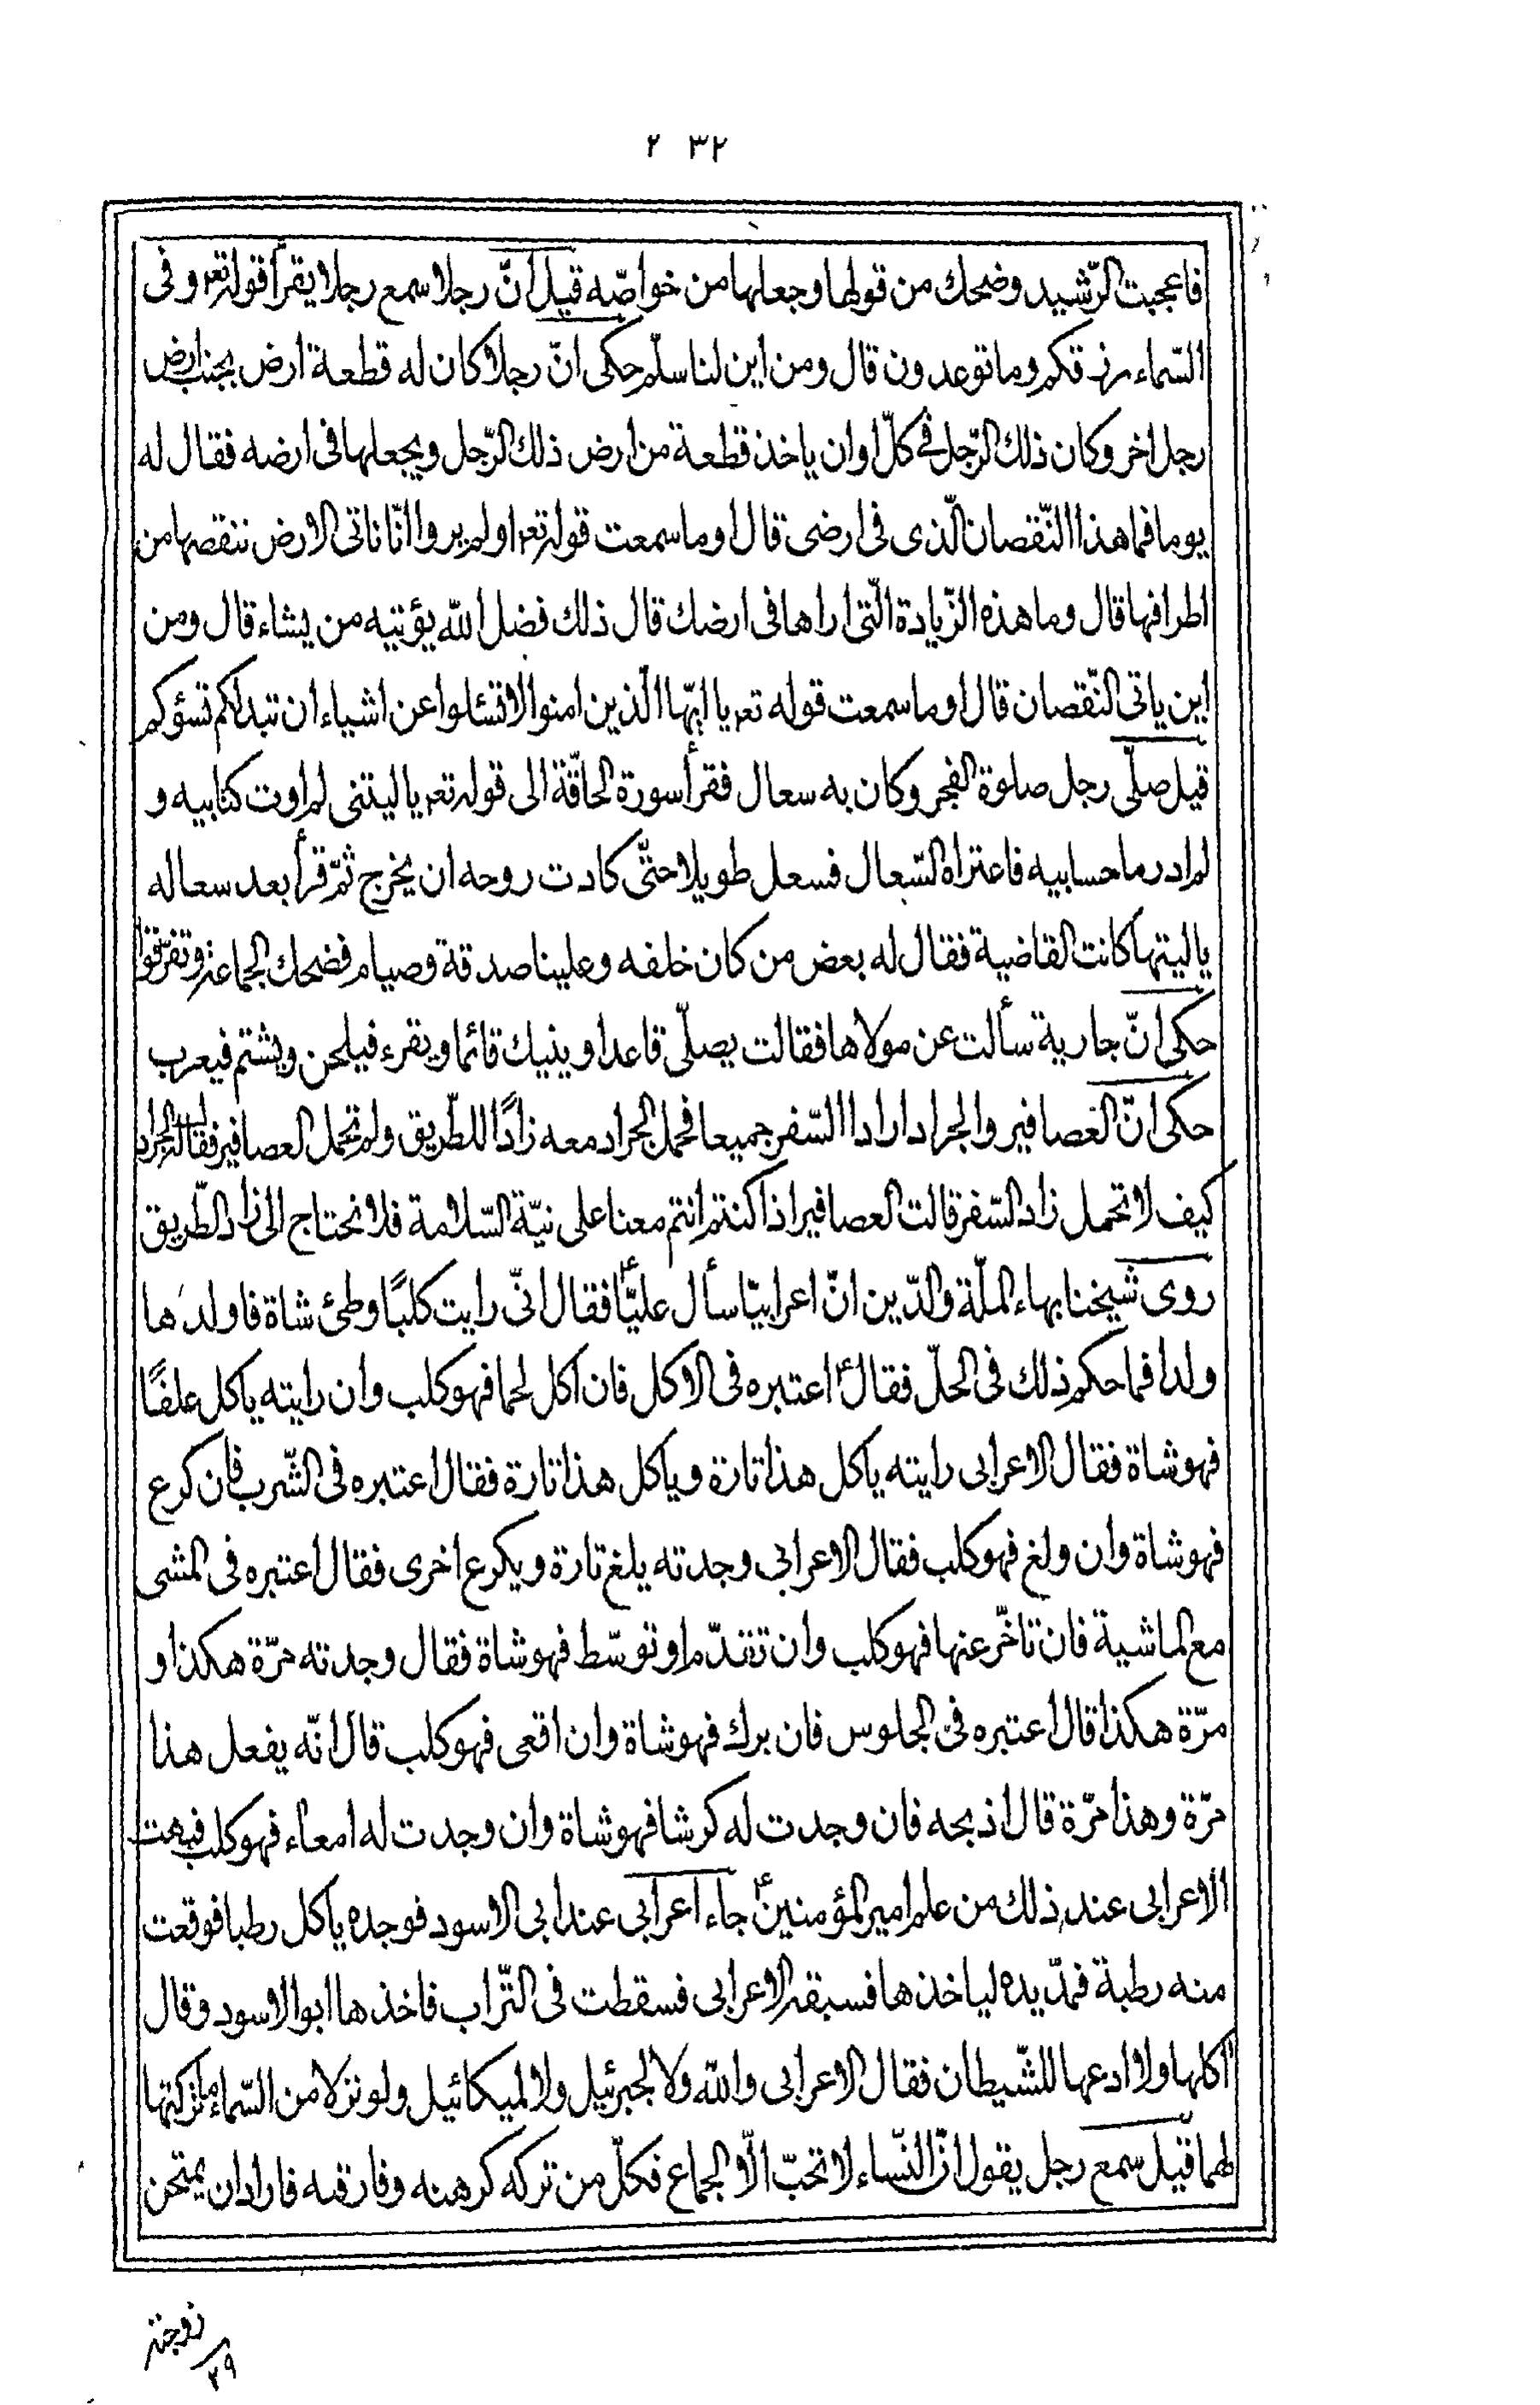 ٢ ٣٢
فاعجبت الرّشيد وضحك من قولها وجعلها من خواصّه قيل انّ رجلا سمع رجلا يقرأ قوله تعه وفى
السّماء رزقكم وما توعدون قال ومن اين لنا سلّم حكى انّ رجلا كان له قطعة ارض بجنب ارض
رجل اخر وكان ذلك الرّجل فى كلّ اوان ياخذ قطعة من ارض ذلك الرّجل ويجعلها فى ارضه فقال له
يوما فما هذا النّقصان الّذى فى ارضى قال اوما سمعت قوله تعه اولم يروا انّا ناتى الارض ننقصها من
اطرافها قال وما هذه الزّيادة الّتى اراها فى ارضك قال ذلك فضل الله يؤتيه من يشاء قال ومن
اين ياتى النّقصان قال اوما سمعت قوله تعه يا ايّها الّذين امنوا لا تسئلوا عن اشياء ان تبد لكم تسؤكم
قيل صلّى رجل صلوة الفجر وكان به سعال فقرأ سورة الحاقّة الى قوله تعه يا ليتنى لم اوت كتابيه و
لم ادر ما حسابيه فاعتراه السّعال فسعل طويلا حتّى كادت روحه ان يخرج ثمّ قرأ بعد سعاله
يا ليتها كانت القاضية فقال له بعض من كان خلفه وعلينا صدقة وصيام فضحك الجماعة وتفرّقوا
حكى انّ جارية سألت عن مولاها فقالت يصلّى قاعدا وينيك قائما ويقرء فيلحن ويشتم فيعرب
حكى انّ العصافير والجراد ارادا السّفر جميعا فحمل الجراد معه زادًا للطّريق ولم تحمل العصافير فقالت الجراد
كيف لا تحمل زاد السّفر قالت العصافير اذا كنتم انتم معنا على نيّة السّلامة فلا نحتاج الى زاد الطّريق
روى شيخنا بهاء الملّة والدّين انّ اعرابيّا سأل عليّا فقال انّى رايت كلبًا وطئ شاة فاولدها
ولدا فما حكم ذلك فى الحلّ فقال اعتبره فى الاكل فان اكل لحما فهو كلب وان رايته ياكل علفًا
فهو شاة فقال الاعرابى رايته ياكل هذا تارة وياكل هذا تارة فقال اعتبره فى الشّرب فان كرع
فهو شاة وان ولغ فهو كلب فقال الاعرابى وجدته يلغ تارة ويكرع اخرى فقال اعتبره فى المشى
مع الماشية فان تاخّر عنها فهو كلب وان تقدّم او توسّط فهو شاة فقال وجدته مرّة هكذا و
مرّة هكذا قال اعتبره فى الجلوس فان برك فهو شاة وان اقعى فهو كلب قال انّه يفعل هذا
مرّة وهذا مرّة قال اذبحه فان وجدت له كرشا فهو شاة وان وجدت له امعاء فهو كلب فبهت
الاعرابى عند ذلك من علم امير المؤمنين جاء اعرابى عند ابى الاسود فوجده ياكل رطبا فوقعت
منه رطبة فمدّ يده لياخذها فسبقه الاعرابى فسقطت فى التّراب فاخذها ابو الاسود وقال
آكلها ولا ادعها للشّيطان فقال الاعرابى والله ولا لجبرئيل ولا لميكائيل ولو نزلا من السّماء ما تركتها
لهما قيل سمع رجل يقول انّ النّساء لا تحبّ الّا الجماع فكلّ من تركه كرهنه وفارقنه فاراد ان يمتحن
زوجته
٢٩